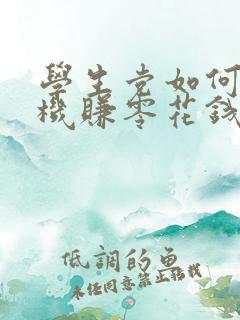 學生党如何
機賺零花錢
低調的魚
未经同意禁止转载